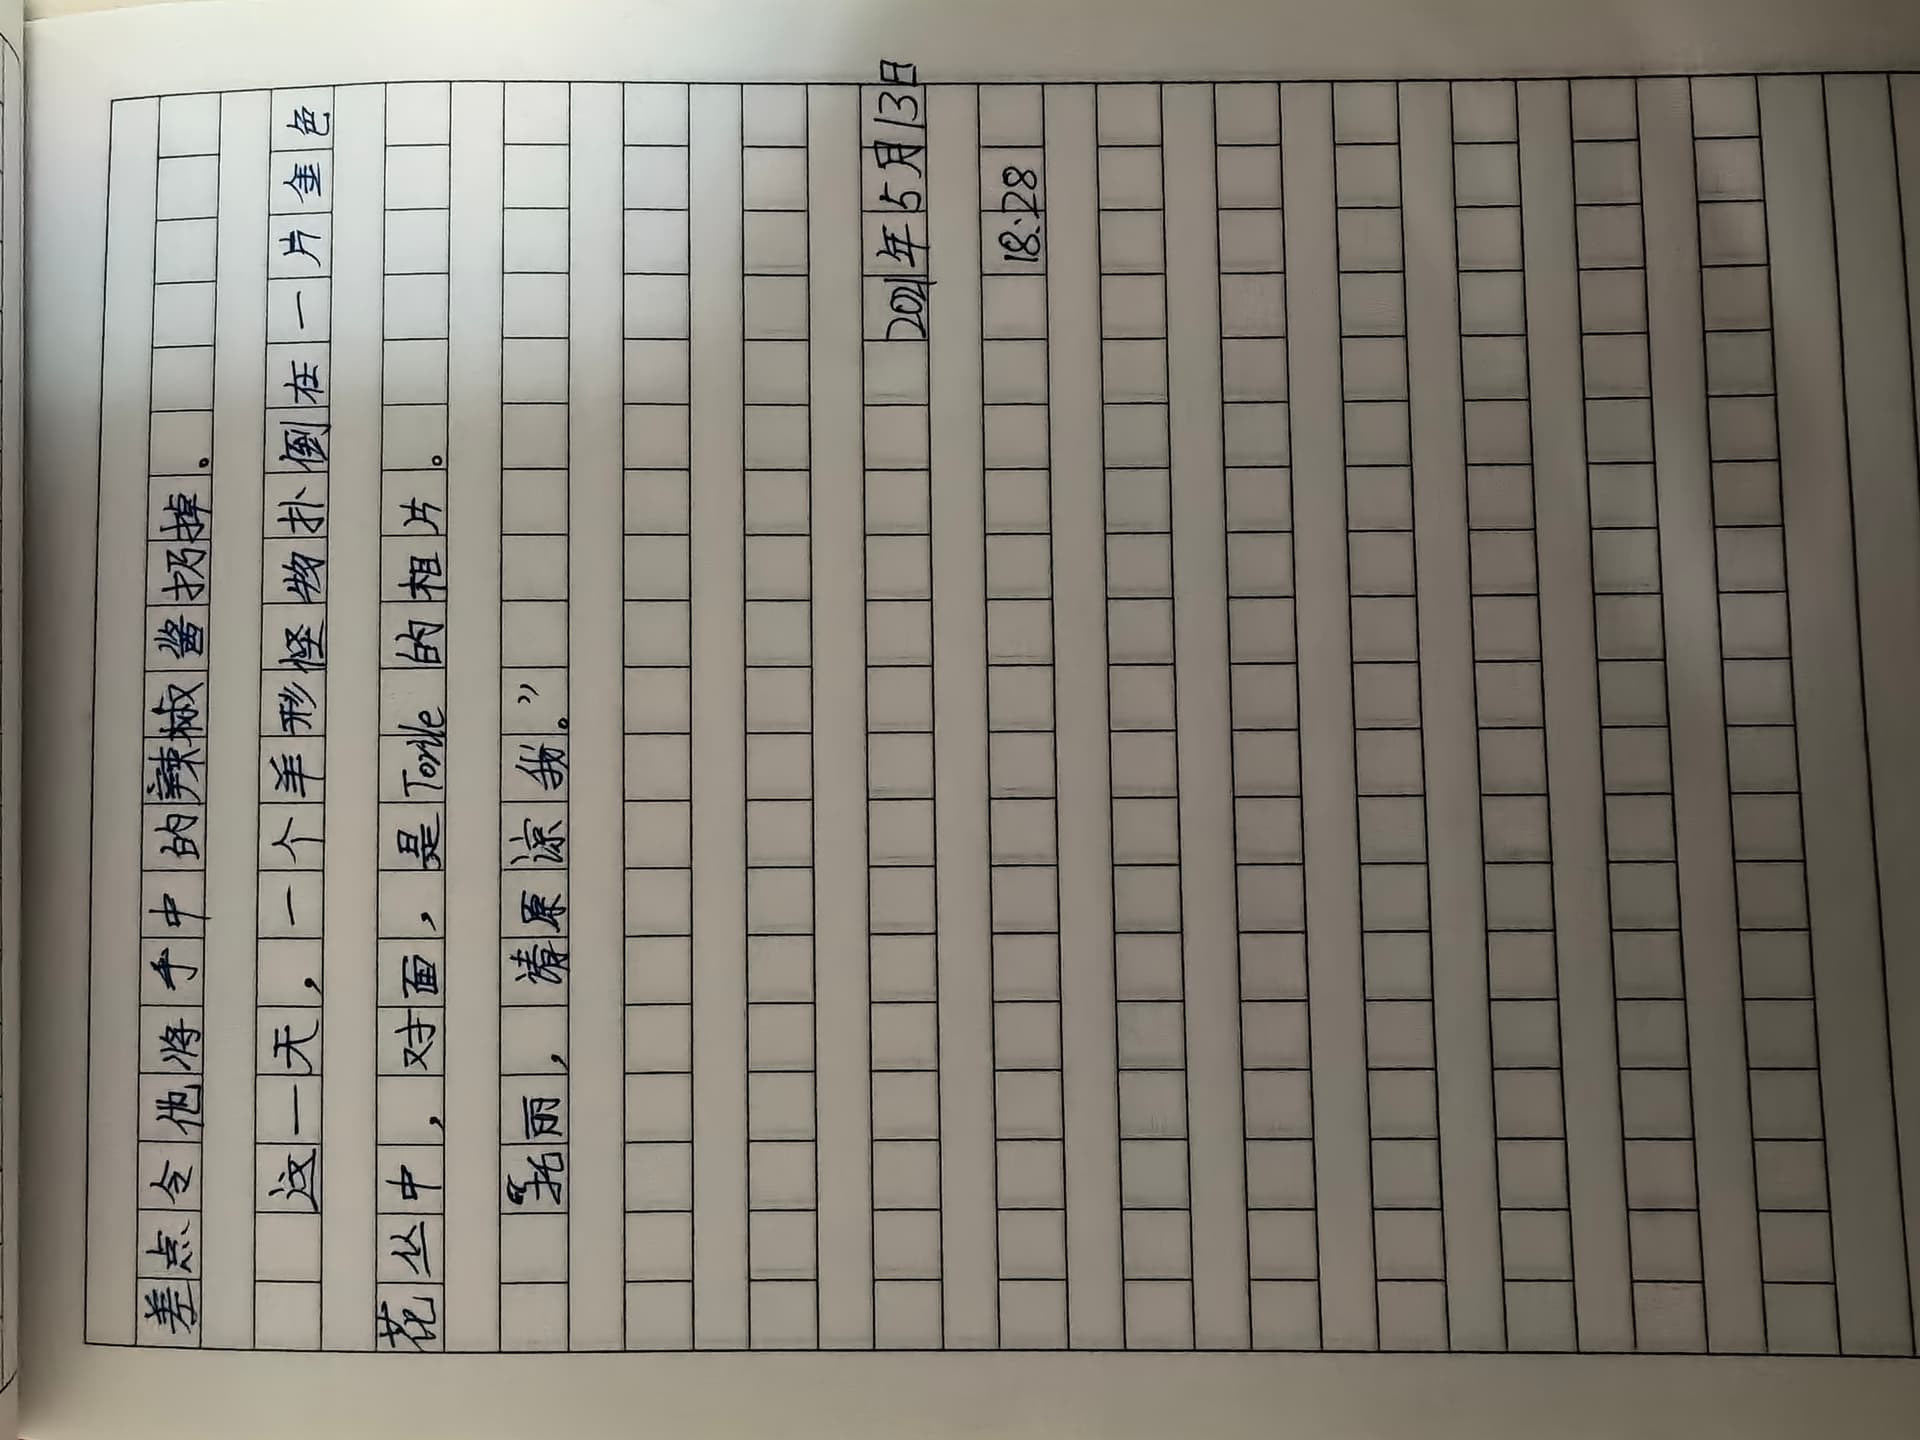 差点令他将手中的辣椒酱扔掉。
这一天，一个羊形怪物扑倒在一片金色
花丛中，对面，是Torlle的相片。
“托丽，请原谅我。”
2021年5月13日
18:28